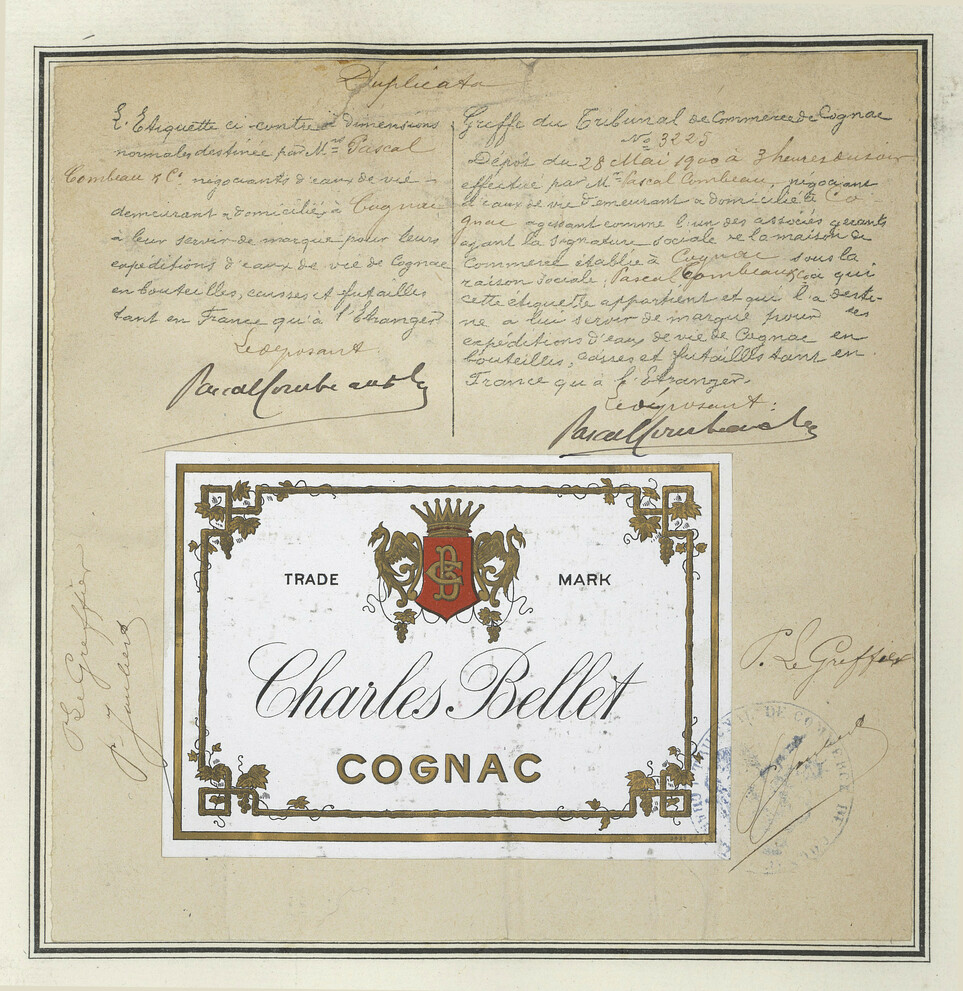 Duplicata
L'Etiquette ci-contre à dimensions
normales destinée par Mr Pascal
Combeau & Cie négociants d'eaux de vie
demeurant & domicilié à Cognac
à leur servir de marque pour leurs
expéditions d'eaux de vie de Cognac
en bouteilles, caisses et futailles
tant en France qu'à l'Etranger
Le déposant
Pascal Combeau & Cie
Greffe du Tribunal de Commerce de Cognac
No 3225
Dépôt du 28 Mai 1900 à 3 heures du soir
effectué par Mr Pascal Combeau, négociant
d'eaux de vie demeurant & domicilié à Co
gnac agissant comme l'un des associés gérants
ayant la signature sociale de la maison de
Commerce établie à Cognac sous la
raison sociale, Pascal Combeau & Co à qui
cette étiquette appartient et qui l'a desti-
né à lui servir de marque pour ses
expéditions d'eaux de vie de Cognac en
bouteilles, caisses et futailles tant en
France qu'à l'Etranger.
Le déposant:
Pascal Combeau & Cie
TRADE MARK
Charles Bellet
COGNAC
P. Le Greffier
P. Le Greffier
TRIBUNAL DE COMMERCE DE COGNAC